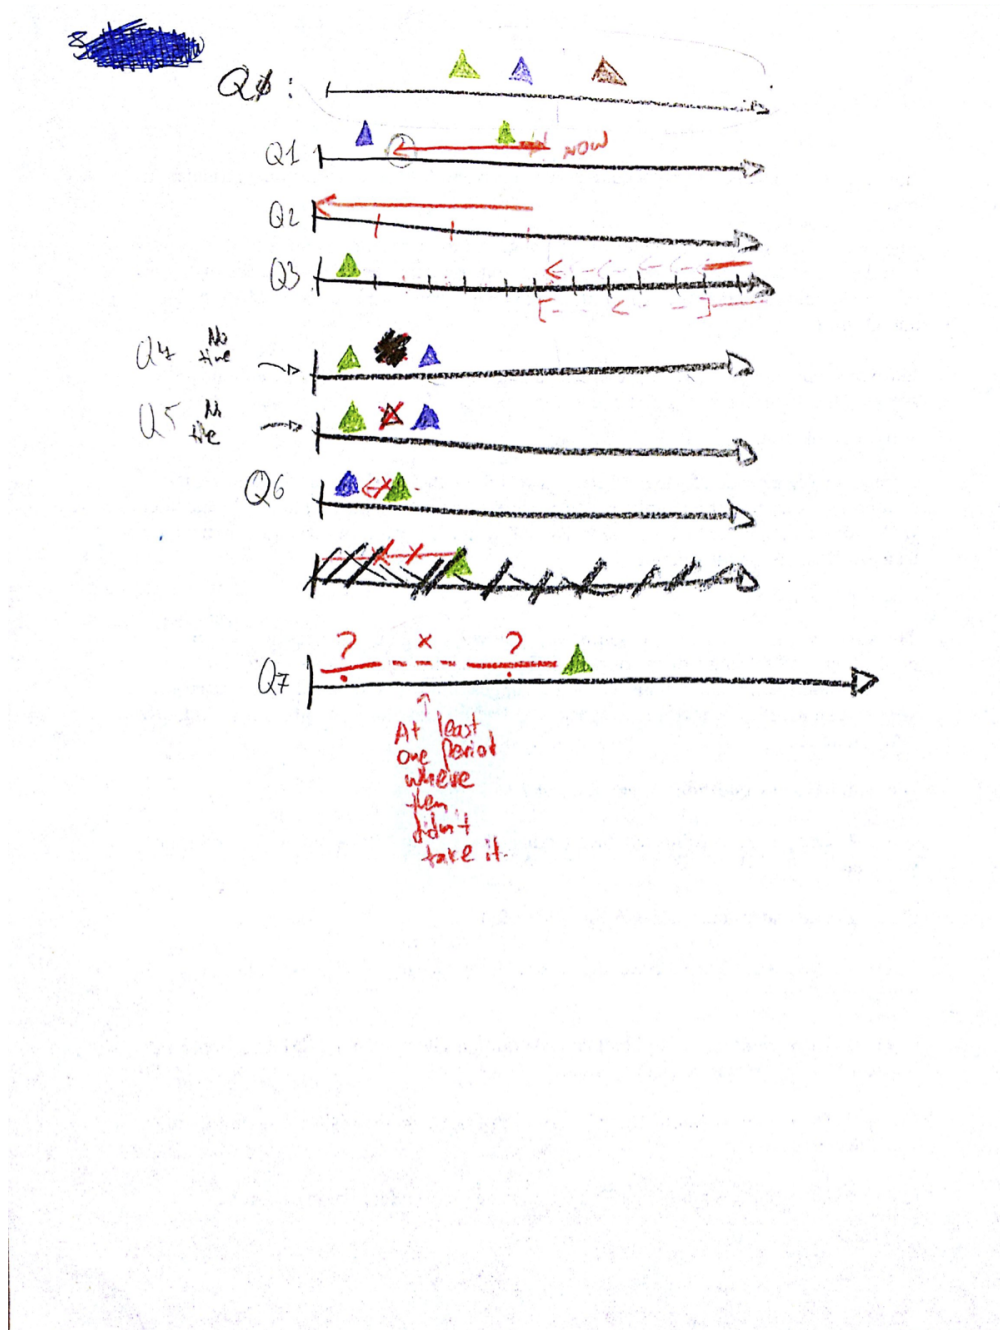 Q0:
Q1
NOW
Q2
Q3
Q4 No
time
Q5 No
Q6
?
x
?
Q7
At least
one period
where
didn't
take it.